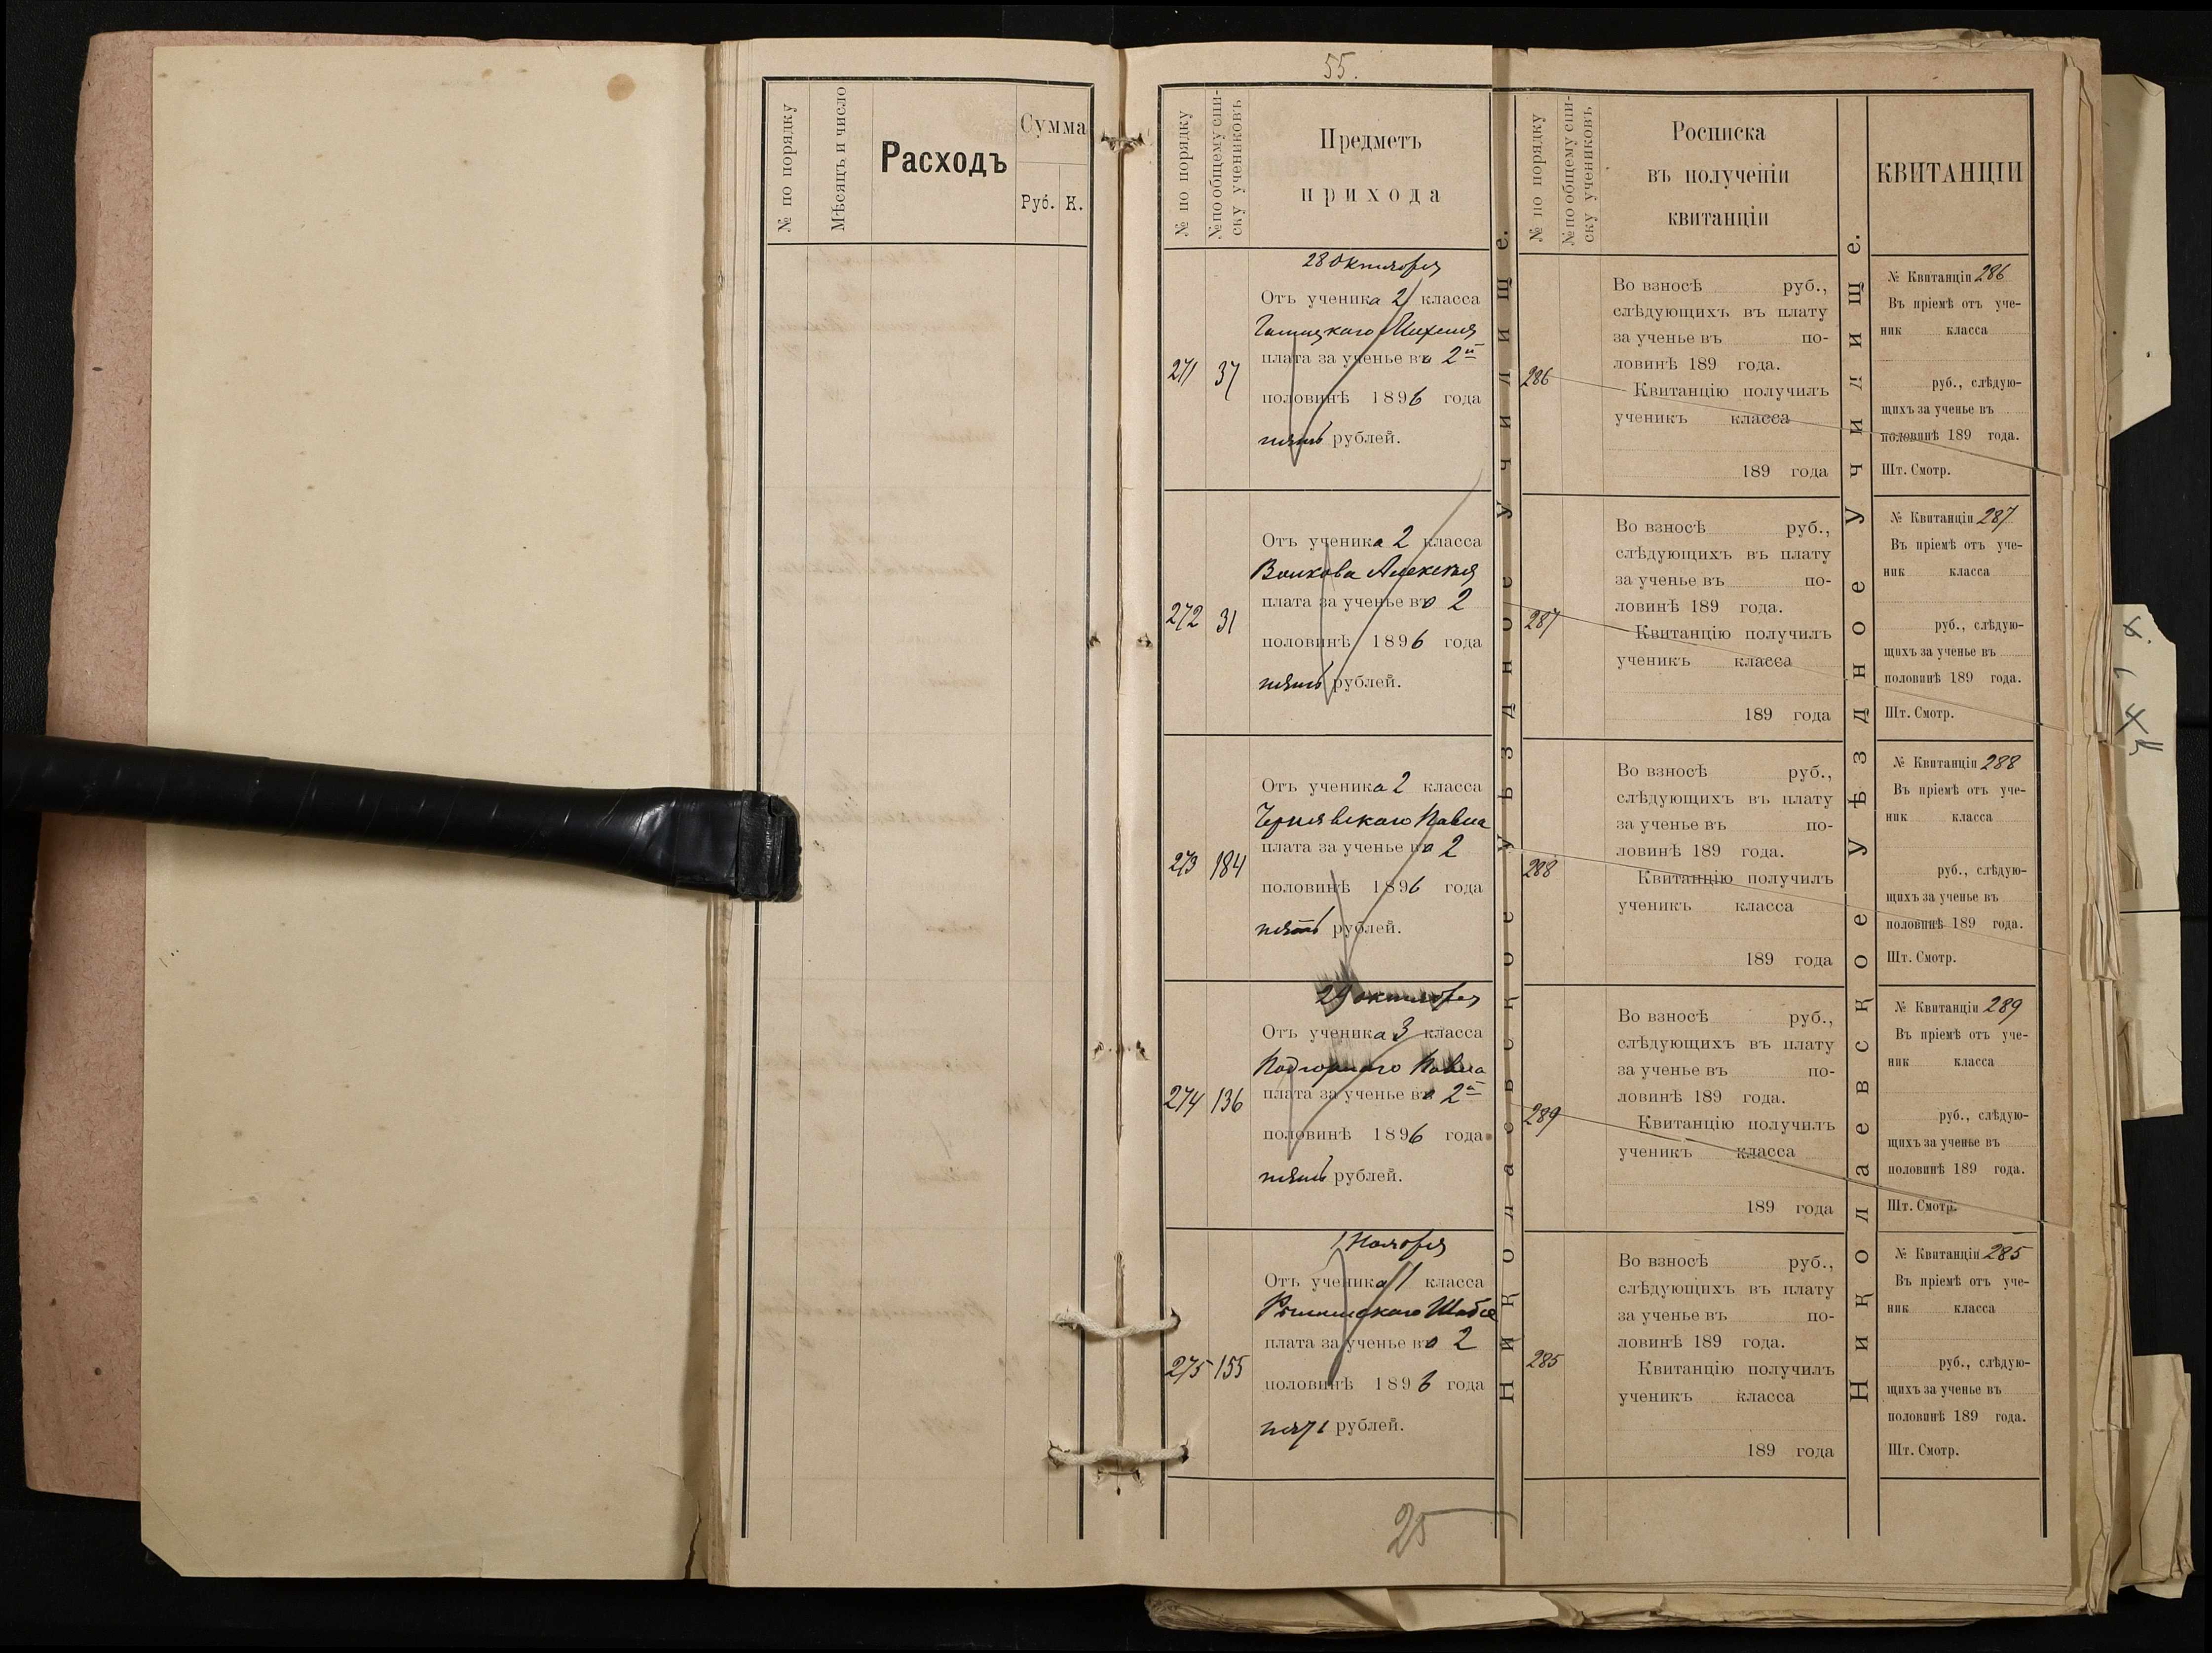 № по порядку
Мѣсяцъ и число
Расходъ
Сумма
Руб. К.
55.
№ по порядку
№ по общему спи-
ску учениковъ
Предметъ
прихода
28 Октября
271 37
Отъ ученика 2 класса
Михаила
плата за ученье во 2й
половинѣ 1896 года
пять рублей.
272 31
Отъ ученика 2 класса
Волкова Алексѣя
плата за ученье во 2
половинѣ 1896 года
пять рублей.
273 184
Отъ ученика 2 класса
Чернявскаго Павла
плата за ученье во 2
половинѣ 1896 года
пять рублей.
29 октября
274 136
Отъ ученика 3 класса
Подгорнаго Павла
плата за ученье во 2й
половинѣ 1896 года
пять рублей.
1 Ноября
275 155
Отъ ученика 1 класса
плата за ученье во 2
половинѣ 1896 года
пять рублей.
25
Николаевское Уѣздное Училище.
№ по порядку
№ по общему спи-
ску учениковъ
Росписка
въ полученіи
квитанціи
286
Во взносѣ руб.,
слѣдующихъ въ плату
за ученье въ по-
ловинѣ 189 года.
Квитанцію получилъ
ученикъ класса
189 года
287
Во взносѣ руб.,
слѣдующихъ въ плату
за ученье въ по-
ловинѣ 189 года.
Квитанцію получилъ
ученикъ класса
189 года
288
Во взносѣ руб.,
слѣдующихъ въ плату
за ученье въ по-
ловинѣ 189 года.
Квитанцію получилъ
ученикъ класса
189 года
289
Во взносѣ руб.,
слѣдующихъ въ плату
за ученье въ по-
ловинѣ 189 года.
Квитанцію получилъ
ученикъ класса
189 года
285
Во взносѣ руб.,
слѣдующихъ въ плату
за ученье въ по-
ловинѣ 189 года.
Квитанцію получилъ
ученикъ класса
189 года
Николаевское Уѣздное Училище.
КВИТАНЦІИ
№ Квитанціи 286
Въ пріемѣ отъ уче-
ник класса
руб., слѣдую-
щихъ за ученье въ
половинѣ 189 года.
Шт. Смотр.
№ Квитанціи 287
Въ пріемѣ отъ уче-
ник класса
руб., слѣдую-
щихъ за ученье въ
половинѣ 189 года.
Шт. Смотр.
№ Квитанціи 288
Въ пріемѣ отъ уче-
ник класса
руб., слѣдую-
щихъ за ученье въ
половинѣ 189 года.
Шт. Смотр.
№ Квитанціи 289
Въ пріемѣ отъ уче-
ник класса
руб., слѣдую-
щихъ за ученье въ
половинѣ 189 года.
Шт. Смотр.
№ Квитанціи 285
Въ пріемѣ отъ уче-
ник класса
руб., слѣдую-
щихъ за ученье въ
половинѣ 189 года.
Шт. Смотр.